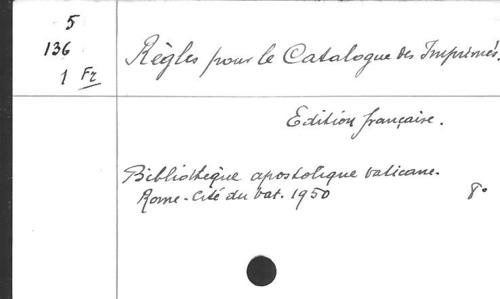 5
136
1 Fr
Règles pour le Catalogue des Imprimés.
Edition française.
Bibliothèque apostolique vaticane.
Rome-Cité du Vat. 1950 8°